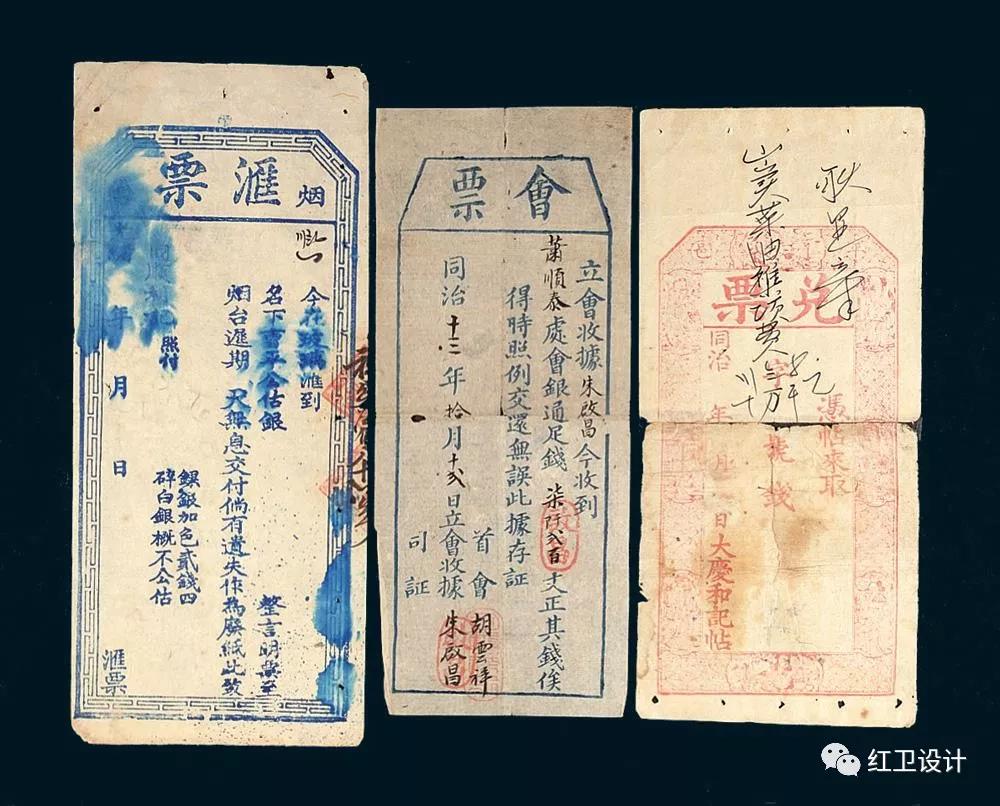 滙票
烟
今在玻璃滙到
名下曹平公估銀
整言明票至
烟台遲期 天無息交付倘有遺失作為廢紙此致
照付
鏍銀加色貳錢四
碎白銀概不公估
年 月 日
滙票
會票
立會收據朱啟昌今收到
蕭順泰處會銀通足錢柒阡弍百文正其錢俟
得時照例交還無誤此據存証
首會 胡雲祥
同治十二年拾月十弍日立會收據朱啟昌
司証
兌票
憑帖來取
字 號 錢
同治 年 月 日大慶和記帖
红卫设计